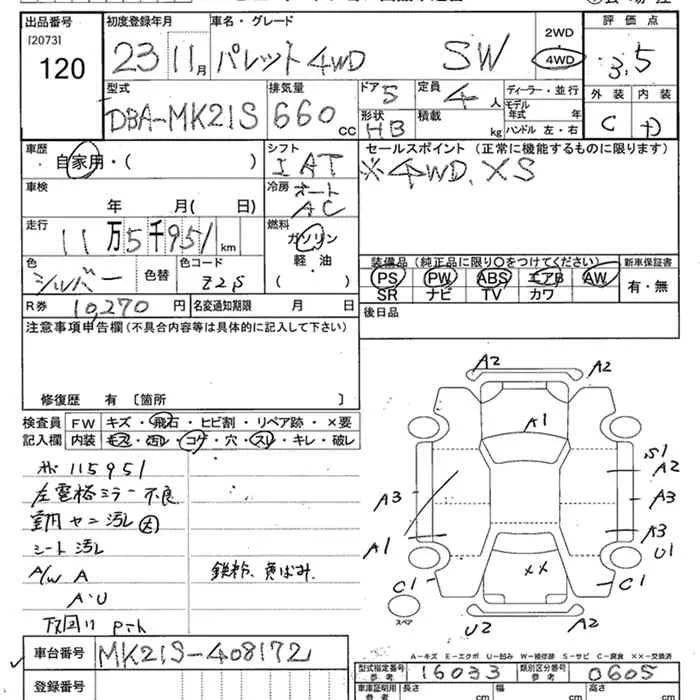 出品番号 初度登録年月 車名・グレード 2WD 評価点
[2073]
120 23 11月 パレット4WD SW 4WD 3.5
型式 排気量 ドア 5 定員 4 人 ディーラー・並行 外装 内装
DBA-MK21S 660 cc 形状 HB 積載 kg モデル年式 年 C D
ハンドル 左・右
車歴 シフト セールスポイント (正常に機能するものに限ります)
自家用・( ) IAT ※4WD、XS
車検 冷房 オート
年 月( 日) AC
走行 燃料
11万5千951km ガソリン
軽・油
色 色替 色コード ( )
シルバー Z2S
装備品(純正品に限り○をつけてください) 新車保証書
PS PW ABS エアB AW 有・無
SR ナビ TV カワ
R券 10,270 円 名変通知期限 月 日 後日品
注意事項申告欄(不具合内容等は具体的に記入して下さい)
修復歴 有 〔箇所 〕
検査員 FW キズ・飛石・ヒビ割・リペア跡・×要
記入欄 内装 モス・汚レ・コゲ・穴・スレ・キレ・破レ
115951
左電格ミラー不良
シート汚レ
A/W A
A・U
A2 A2
A1
S1
A2
A3 A3
A1 A3
U1
C1 ×× C1
スペア
U2 A2
A-キズ E-エクボ U-凹み W-補修跡 S-サビ C-腐食 ××-交換済
車台番号 MK21S-408172
型式指定番号 参考 16033 類別区分番号 参考 0605
登録番号
車庫証明用 参考 長さ cm 幅 cm 高さ cm